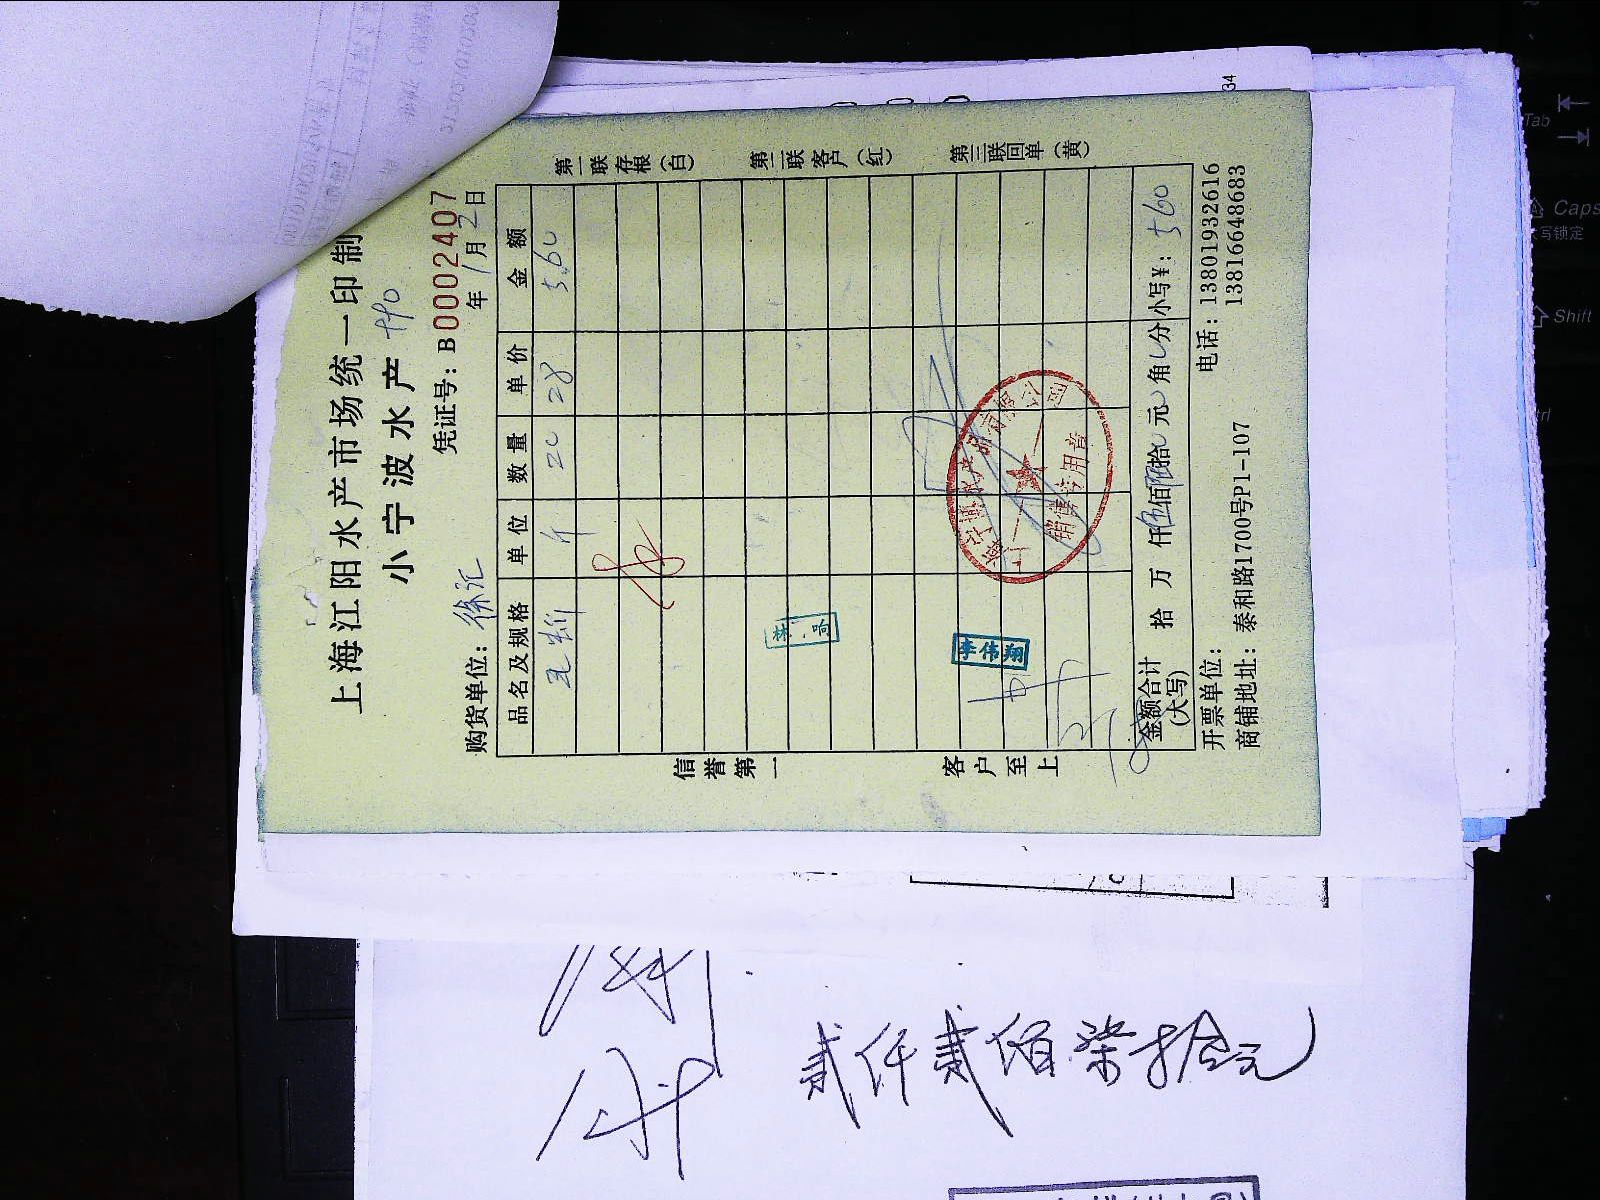 上海江阳水产市场统一印制
小宁波水产
凭证号：B0002407
购货单位：徐汇 年1月2日
品名及规格 单位 数量 单价 金额
斤 20 28 560
林
李伟翔
销售专用章
金额合计(大写) 拾 万 仟伍佰陆拾元角分 小写¥：560
开票单位： 电话：13801932616
商铺地址：泰和路1700号P1-107 13816648683
信誉第一 客户至上
第一联存根(白) 第二联客户(红) 第三联回单(黄)
贰仟贰佰柒拾元
34
Tab
Caps
写锁定
Shift